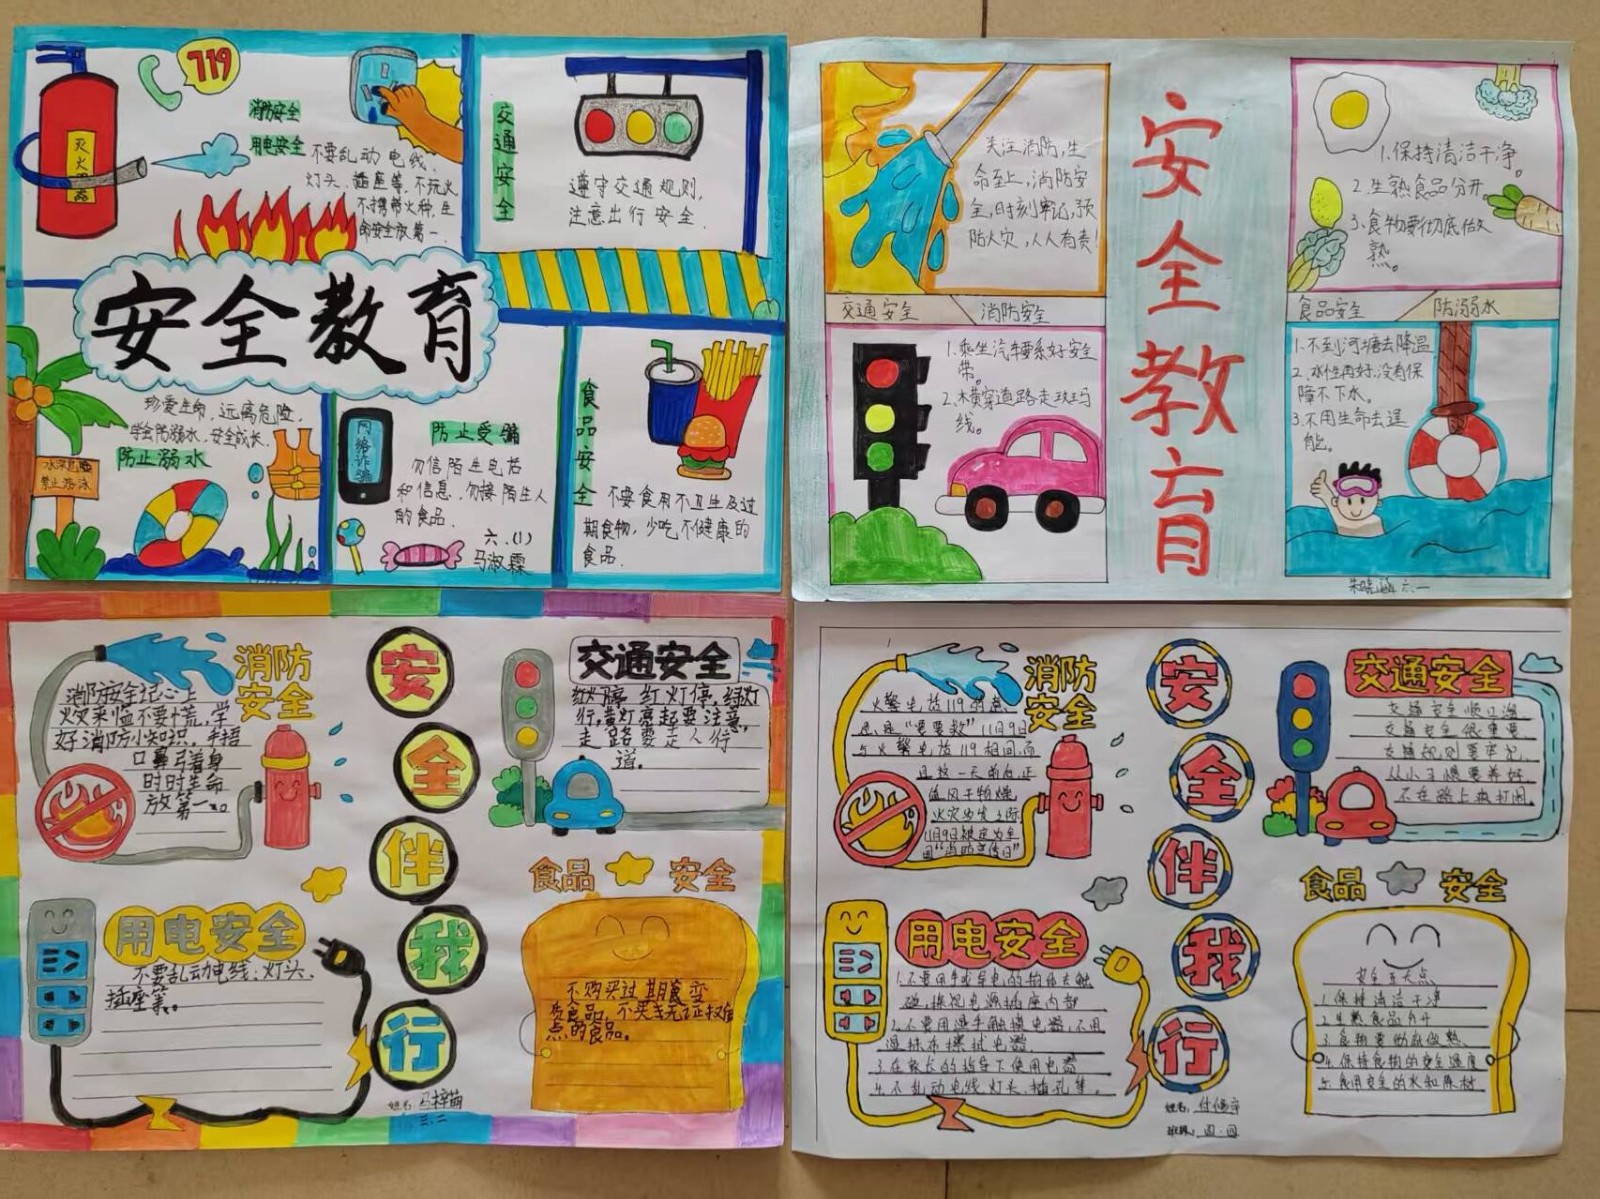 719
消防安全
用电安全
不要乱动电线、
灯头、插座等,不玩火
不携带火种,生
命安全放第一
灭火器
交通安全
遵守交通规则,
注意出行安全.
安全教育
珍爱生命,远离危险,
学会防溺水,安全成长.
防止溺水
水深危险
禁止游泳
网络诈骗
防止受骗
勿信陌生电话
和信息,勿接陌生人
的食品.
六.(1)
马淑霖
食品安全
不要食用不卫生及过
期食物,少吃不健康的
食品.
关注消防,生
命至上,消防安
全,时刻牢记,预
防火灾,人人有责!
交通安全
消防安全
1.乘坐汽车要系好安全
带。
2.横穿道路走斑马
线。
安全教育
1.保持清洁干净。
2.生熟食品分开
3.食物要彻底做
熟。
食品安全
防溺水
1.不到河塘去降温
2.水性再好,没有保
障不下水。
3.不用生命去逞
能。
六.一
消防
安全
消防安全记心上
火灾来临不要慌,学
好消防小知识。手捂
口鼻弓着身
时时生命
放第一。
安全伴我行
交通安全
红灯停,绿灯
行,黄灯亮起要注意,
走路要走人行
道。
用电安全
不要乱动电线、灯头、
插座等。
食品安全
不购买过期食变
质食品,不买
点的食品。
姓名:马梓萌
三.二
消防
安全
火警电话119
"要要救"11月9日
与火警电话119相同,而
且这一天前后,正
值风干物燥,
11月9日被定为全
国"消防宣传日"
安全伴我行
交通安全
交通安全顺口溜
交通安全很重要
交通规则要牢记
从小习惯要养好
不在路上
用电安全
1.不要用手或导电的物体去触
碰、探视电源插座内部
2.不要用湿手触摸电器,不用
湿抹布擦拭电器.
3.在家长的指导下使用电器
4.不乱动电线、灯头、插孔等.
食品安全
安全五大点
1.保持清洁干净
2.生熟食品分开
3.食物要彻底做熟.
4.保持食物的安全温度
5.食用安全的水和原材
姓名:
班级:四.四